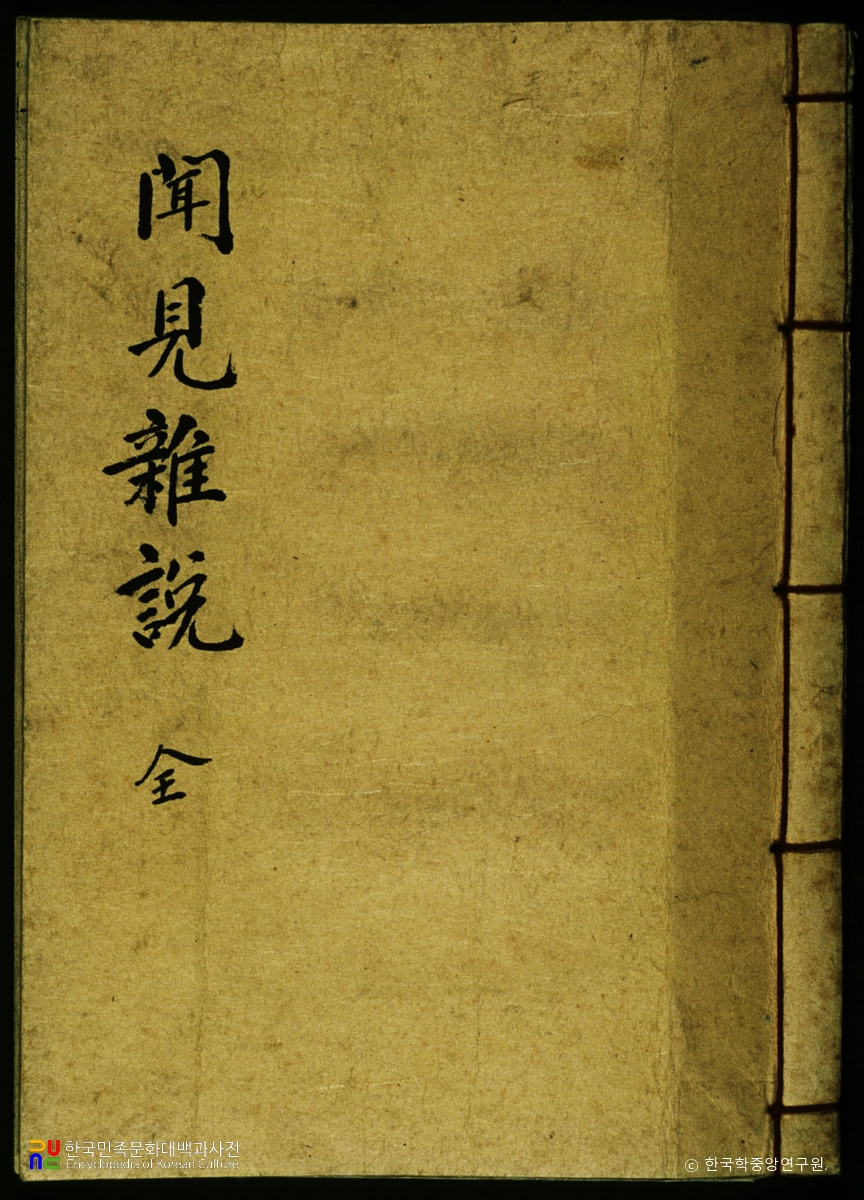 聞見雜說 全
한국민족문화대백과사전
Encyclopedia of Korean Culture
© 한국학중앙연구원.